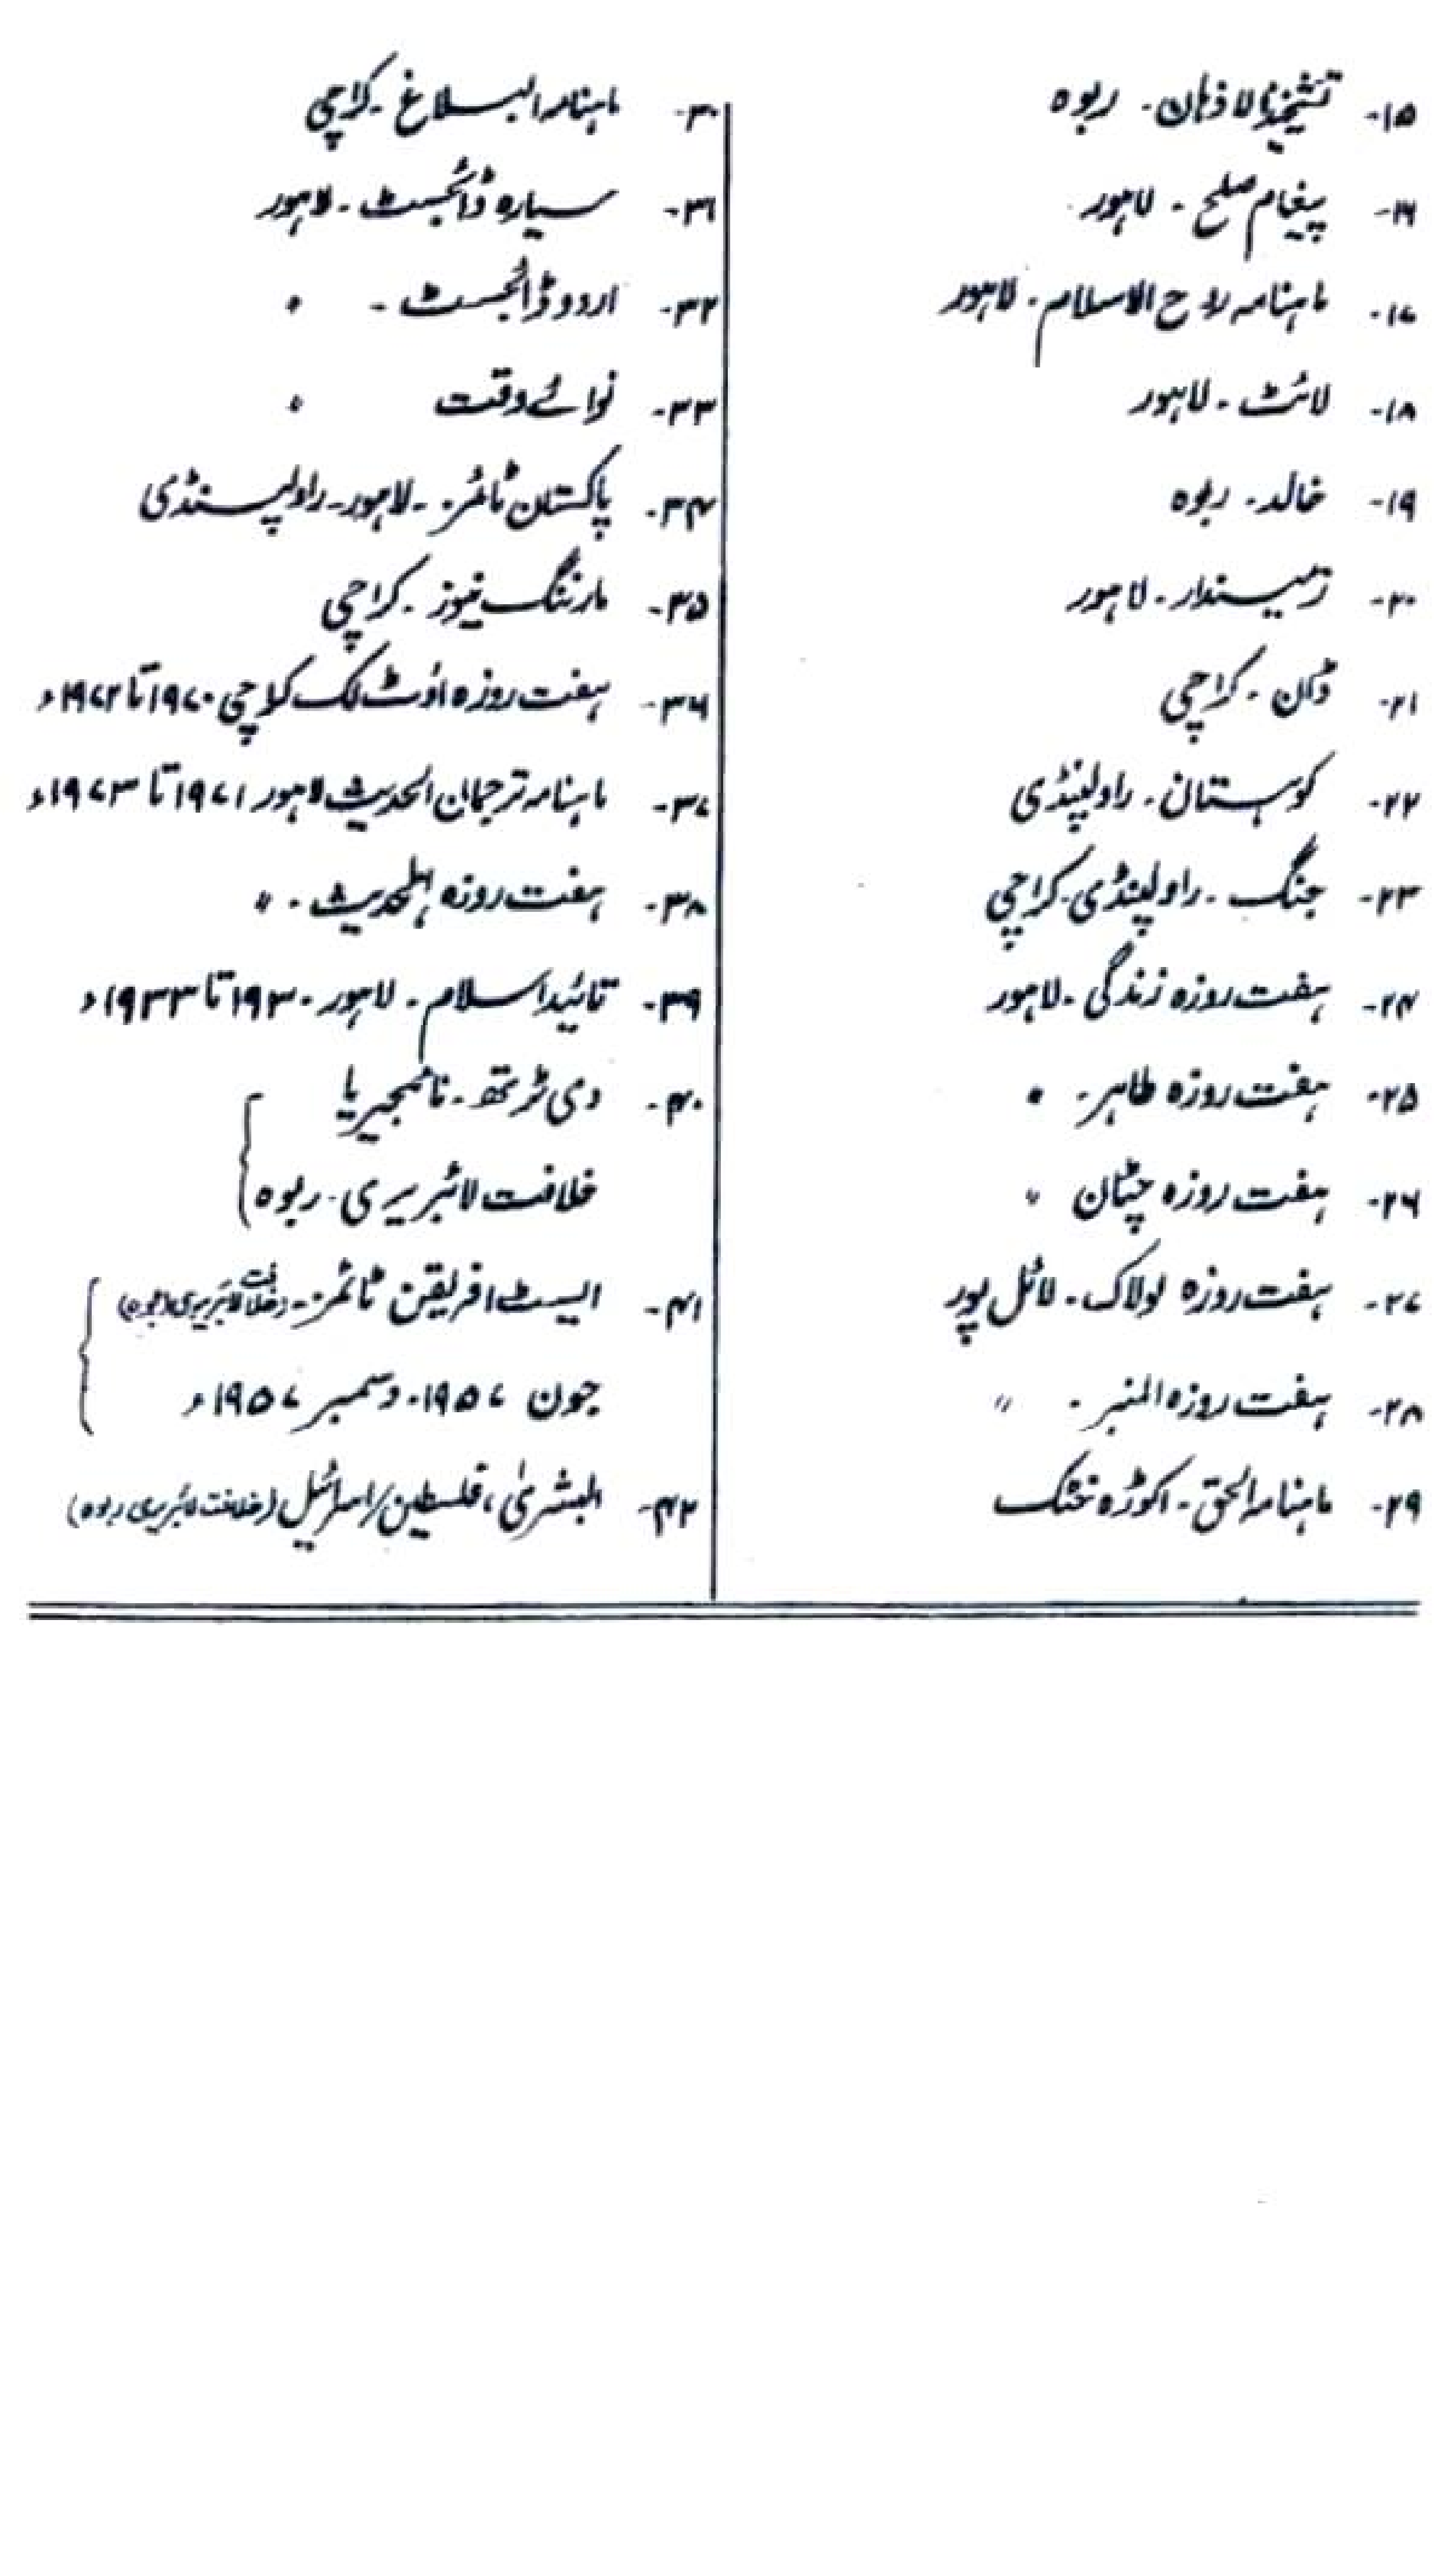 ۱۵- تشحیذ الاذہان - ربوہ
۱۶- پیغام صلح - لاہور
۱۷- ماہنامہ روح الاسلام - لاہور
۱۸- لائٹ - لاہور
۱۹- خالد - ربوہ
۲۰- زمیندار - لاہور
۲۱- ڈان - کراچی
۲۲- کوہستان - راولپنڈی
۲۳- جنگ - راولپنڈی - کراچی
۲۴- ہفت روزہ زندگی - لاہور
۲۵- ہفت روزہ طاہر - 〃
۲۶- ہفت روزہ چٹان 〃
۲۷- ہفت روزہ لولاک - لائل پور
۲۸- ہفت روزہ المنبر - 〃
۲۹- ماہنامہ الحق - اکوڑہ خٹک
۳۰- ماہنامہ البلاغ - کراچی
۳۱- سیارہ ڈائجسٹ - لاہور
۳۲- اردو ڈائجسٹ - 〃
۳۳- نوائے وقت 〃
۳۴- پاکستان ٹائمز - لاہور - راولپنڈی
۳۵- مارننگ نیوز - کراچی
۳۶- ہفت روزہ اؤٹ لک کراچی ۱۹۷۰ تا ۱۹۷۲ء
۳۷- ماہنامہ ترجمان الحدیث لاہور ۱۹۷۱ تا ۱۹۷۳ء
۳۸- ہفت روزہ اہلحدیث - 〃
۳۹- تائید اسلام - لاہور - ۱۹۳۰ تا ۱۹۳۳ء
۴۰- دی ٹرتھ - نائیجیریا
خلافت لائبریری - ربوہ
۴۱- ایسٹ افریقن ٹائمز - (خلافت لائبریری ربوہ)
جون ۱۹۵۷ - دسمبر ۱۹۵۷ء
۴۲- البشریٰ ، فلسطین/اسرائیل (خلافت لائبریری ربوہ)